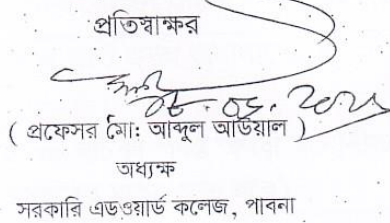 প্রতিস্বাক্ষর
( প্রফেসর মো: আব্দুল আউয়াল )
অধ্যক্ষ
সরকারি এডওয়ার্ড কলেজ, পাবনা